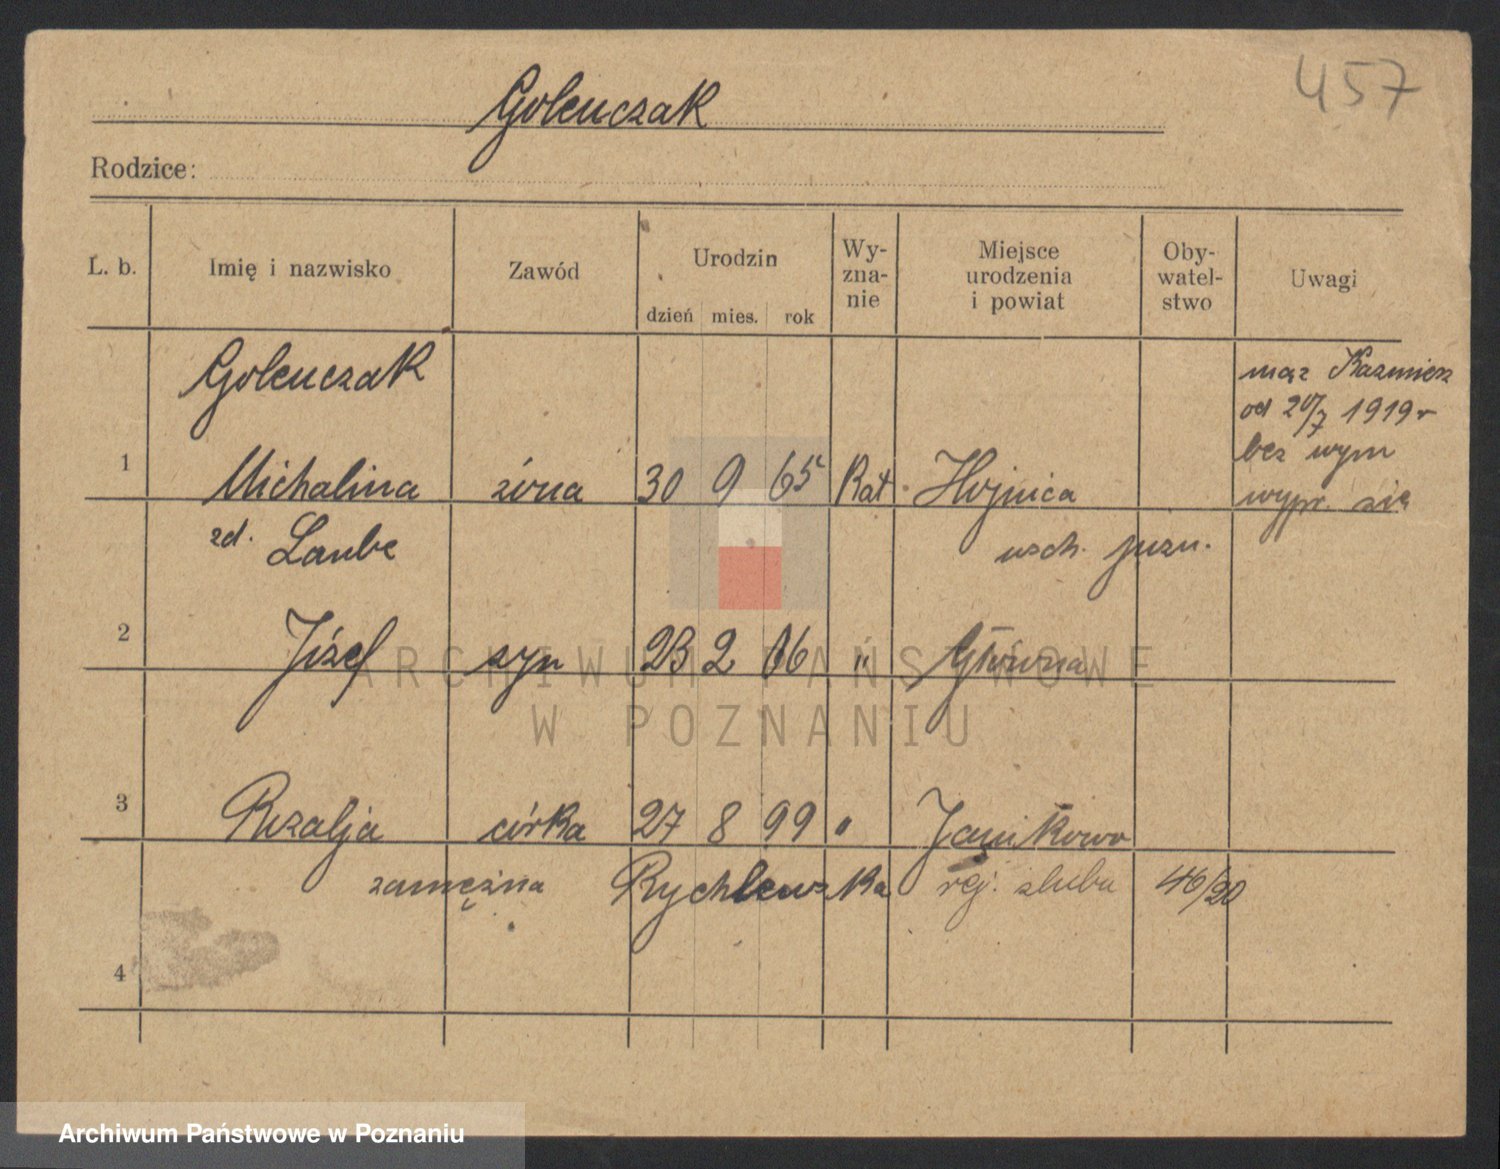 457
Golenczak
Rodzice:
L. b. Imię i nazwisko Zawód Urodzin dzień mies. rok Wy-zna-nie Miejsce urodzenia i powiat Oby-watel-stwo Uwagi
Golenczak
mąż Kazmierz
od 20/7 1919 r
bez wym
1 Michalina żona 30 9 65 Kat. Hojnica
wypr. się
zd. Laube
wsch.
2 Józef syn 23 2 06 " Główna
ARCHIWUM PAŃSTWOWE
W POZNANIU
3 Rozalja córka 27 8 99 " Janikowo
zamężna Rychlewska rej. slubu 46/20
4
Archiwum Państwowe w Poznaniu